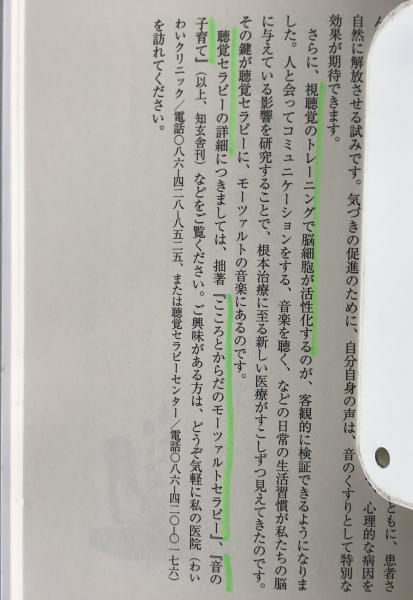 ともに、患者さ
心理的な病因を
自然に解放させる試みです。気づきの促進のために、自分自身の声は、音のくすりとして特別な
効果が期待できます。
さらに、視聴覚のトレーニングで脳細胞が活性化するのが、客観的に検証できるようになりま
した。人と会ってコミュニケーションをする、音楽を聴く、などの日常の生活習慣が私たちの脳
に与えている影響を研究することで、根本治療に至る新しい医療がすこしずつ見えてきたのです。
その鍵が聴覚セラピーに、モーツァルトの音楽にあるのです。
聴覚セラピーの詳細につきましては、拙著『こころとからだのモーツァルトセラピー』、『音の
子育て』（以上、知玄舎刊）などをご覧ください。ご興味がある方は、どうぞ気軽に私の医院（わい
わいクリニック／電話〇八六―四二八―八五二五、または聴覚セラピーセンター／電話〇八六―四二〇―〇一七六）
を訪れてください。